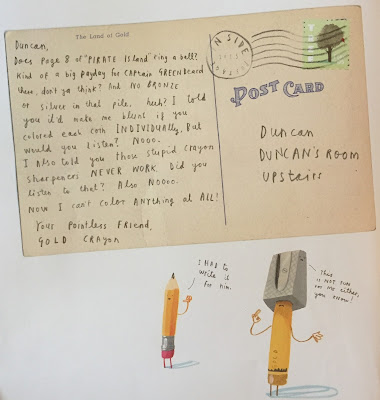 The Land of Gold
Duncan,
Does Page 8 of "PIRATE ISLAND" ring a ball?
Kind of a big payday for CAPTAIN GREENbeard
there, don't ya think? And NO BRONZE
or silver in that pile, huh? I told
you it'd make me blunt if you
colored each coin INDIVIDUALLY. But
would you listen? Nooo.
I also told you those stupid crayon
sharpeners NEVER WORK. Did you
listen to that? Also, Noooo.
Now I can't color ANYTHING at ALL!
Your Pointless Friend,
GOLD CRAYON
POST CARD
Duncan
DUNCAN'S ROOM
UPstairs
I HAD to
write it
for him.
This
is NOT FUN
for ME either,
you know!